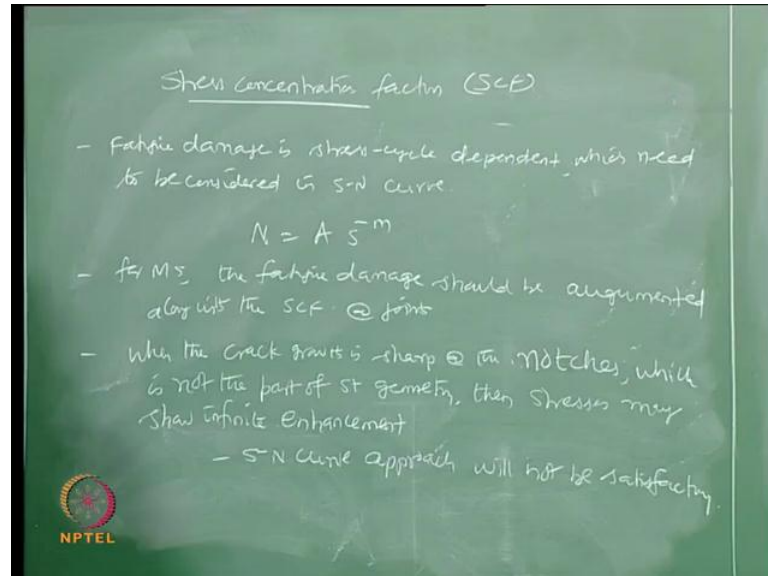 Stress concentration factor (SCF)
- Fatigue damage is stress-cycle dependent, which need
to be considered in S-N curve.
N = A S^-m
- for MS, the fatigue damage should be augumented
along with the SCF @ joints
- when the crack growth is sharp @ the notches, which
is not the part of st geometry, then stresses may
show infinite enhancement
- S-N curve approach will not be satisfactory.
NPTEL